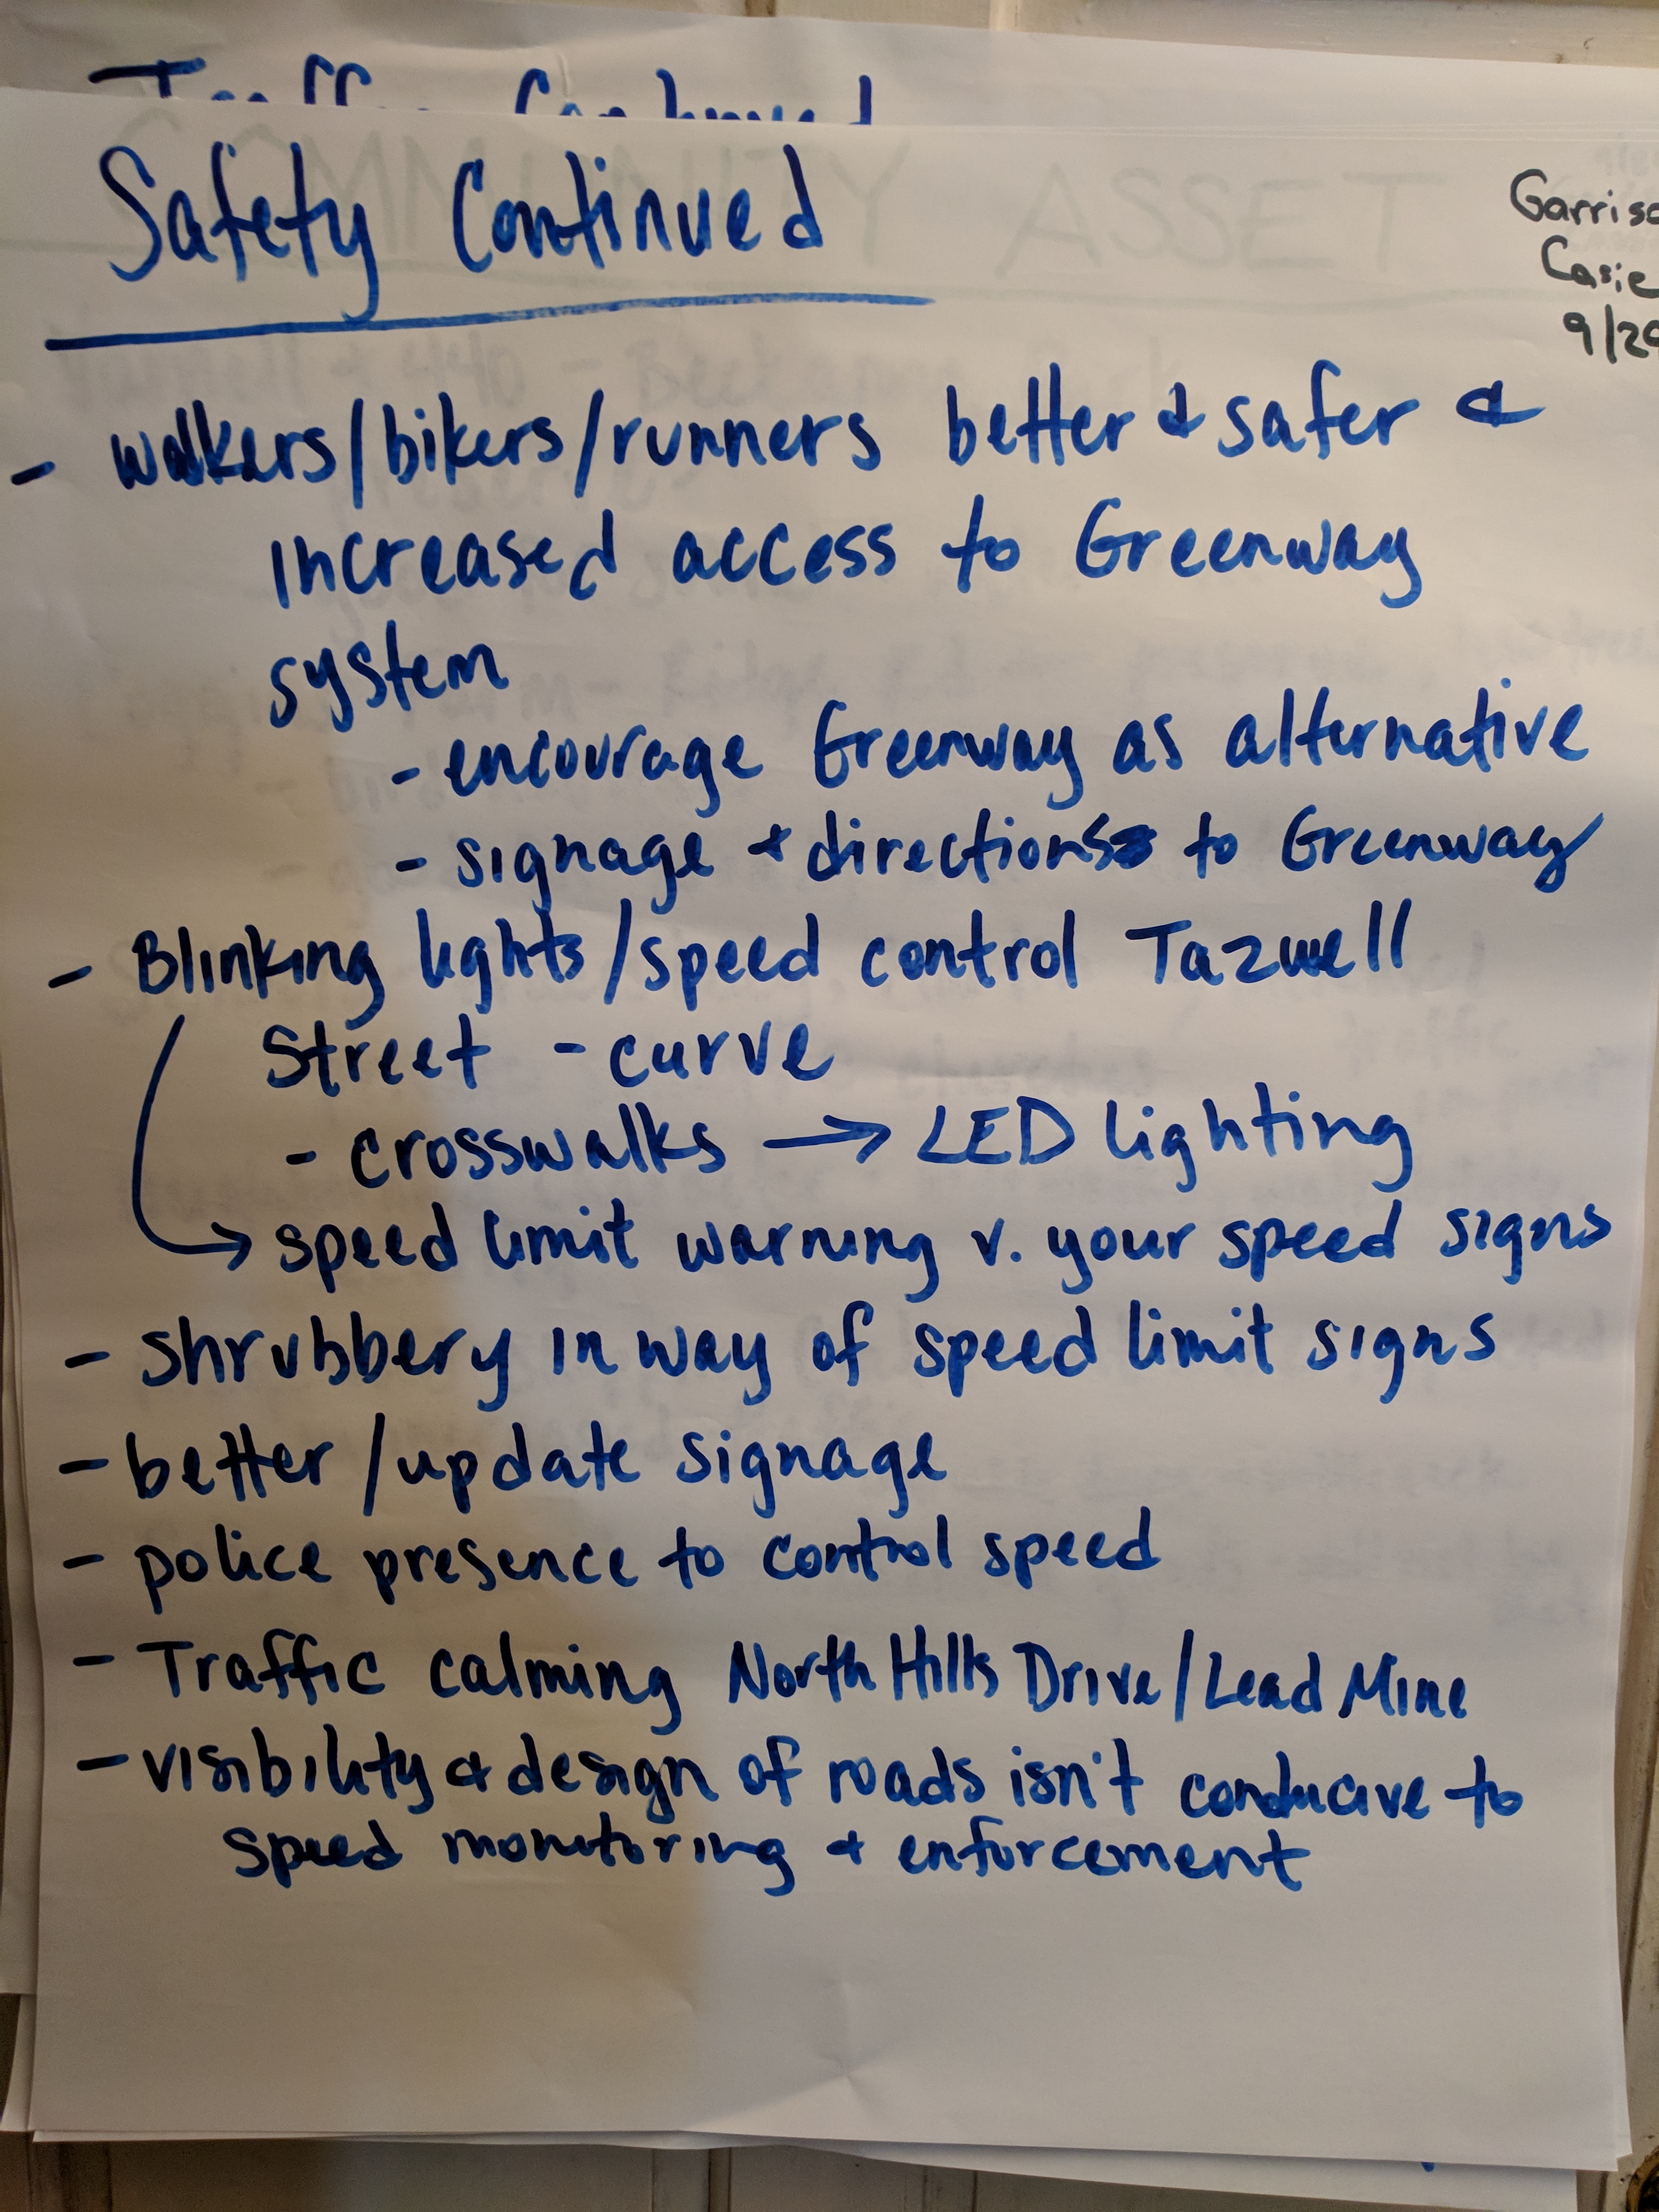 Safety Continued
Garriso
Casie
9/29
- walkers/bikers/runners better & safer &
increased access to Greenway
system
- encourage Greenway as alternative
- signage + directions to Greenway
- Blinking lights/speed control Tazwell
Street - curve
- crosswalks → LED lighting
→ speed limit warning v. your speed signs
- shrubbery in way of speed limit signs
- better/update signage
- police presence to control speed
- Traffic calming North Hills Drive/Lead Mine
- visibility & design of roads isn't conducive to
speed monitoring + enforcement